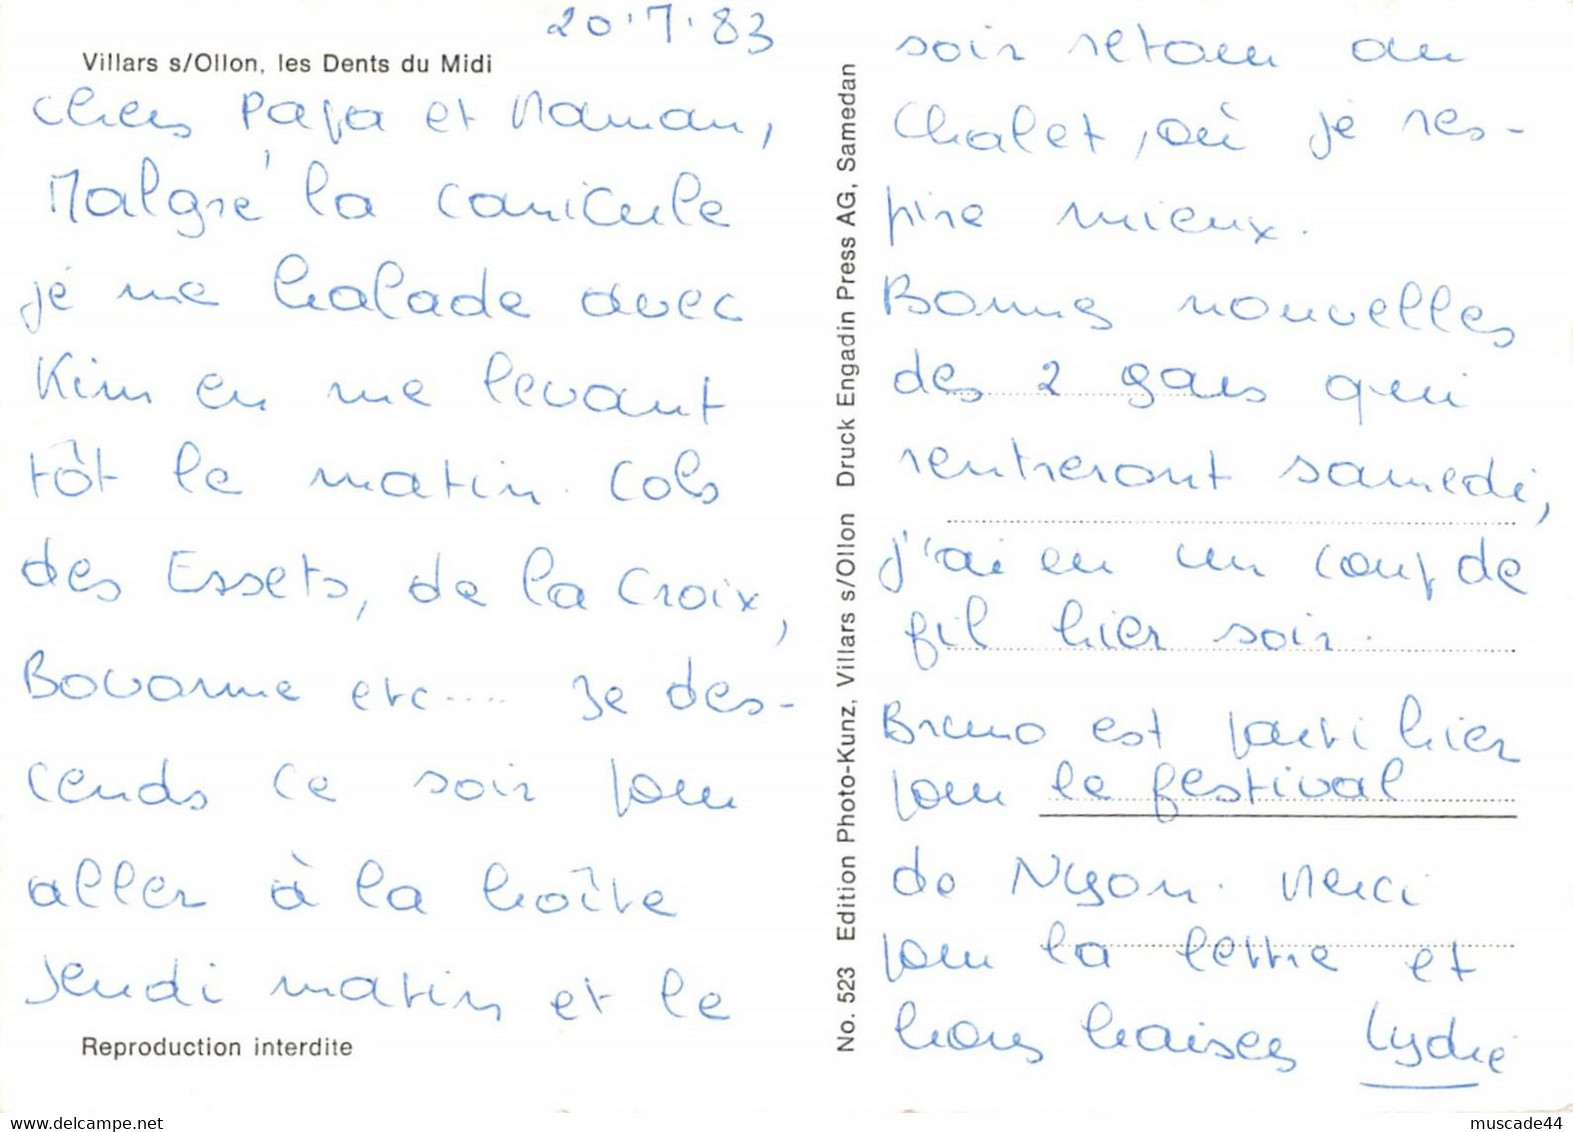 20.7.83
Villars s/Ollon, les Dents du Midi
Chers Papa et Maman,
Malgré la canicule
je me balade avec
Kim en me levant
tôt le matin. Cols
des Essets, de la Croix,
Bovonne etc.... Je des-
cends ce soir pour
aller à la boîte
Jeudi matin et le
Reproduction interdite
No. 523 Edition Photo-Kunz, Villars s/Ollon Druck Engadin Press AG, Samedan
soir retour au
Chalet, où je res-
pire mieux.
Bonnes nouvelles
des 2 gars qui
rentreront samedi,
j'ai eu un coup de
fil hier soir.
Bruno est parti hier
pour le festival
de Nyon. Merci
pour la lettre et
bons baisers Lydie
https://www.delcampe.net
muscade44